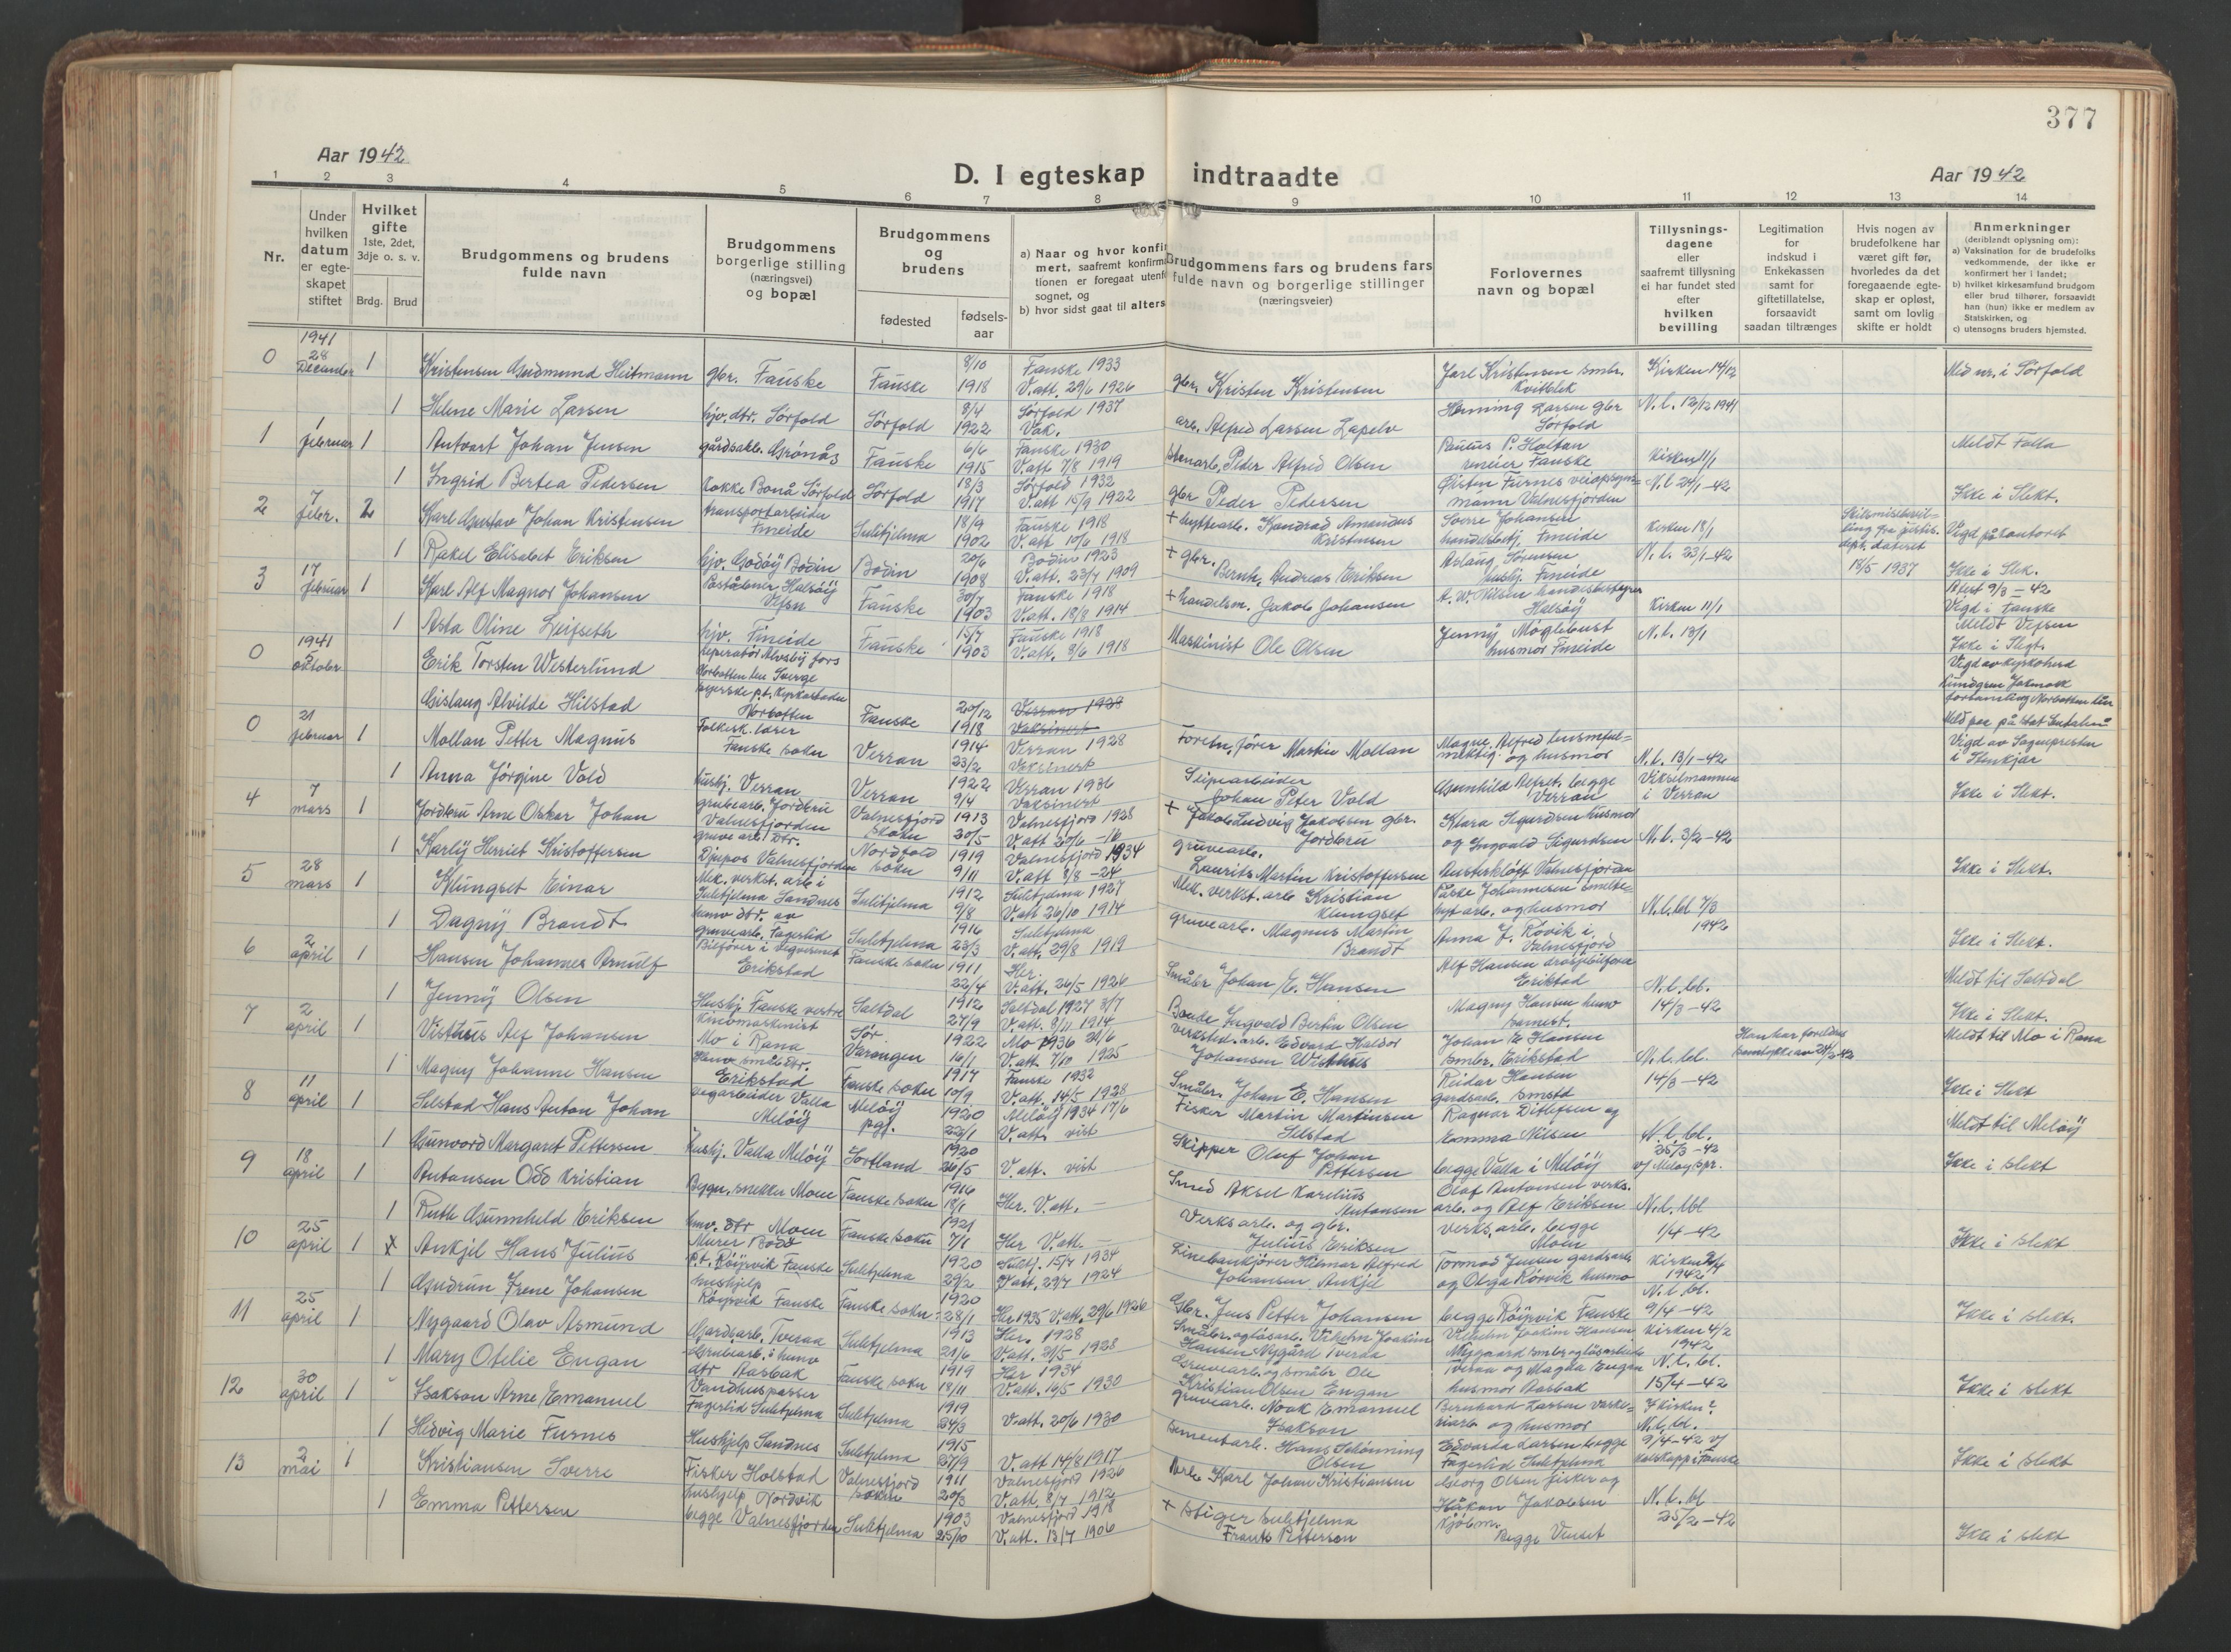 377
Aar 1942
D. I egteskap indtraadte
Aar 1942
1 2 3 4 5 6 7 8 9 10 11 12 13 14
Nr.
Under hvilken datum er egte-skapet stiftet
Hvilket gifte
1ste, 2det, 3dje o. s. v.
Brdg. Brud
Brudgommens og brudens fulde navn
Brudgommens borgerlige stilling (næringsvei) og bopæl
Brudgommens og brudens
fødested
fødsels-aar
a) Naar og hvor konfir
mert, saafremt konfirma
tionen er foregaat utenfo
sognet, og
b) hvor sidst gaat til alters
Brudgommens fars og brudens fars
fulde navn og borgerlige stillinger
(næringsveier)
Forlovernes
navn og bopæl
Tillysnings-
dagene
eller
saafremt tillysning
ei har fundet sted
efter
hvilken
bevilling
Legitimation
for
indskud i
Enkekassen
samt for
giftetillatelse,
forsaavidt
saadan tiltrænges
Hvis nogen av
brudefolkene har
været gift før,
hvorledes da det
foregaaende egte-
skap er opløst,
samt om lovlig
skifte er holdt
Anmerkninger
(deriblandt oplysning om):
a) Vaksination for de brudefolks
vedkommende, der ikke er
konfirmert her i landet;
b) hvilket kirkesamfund brudgom
eller brud tilhører, forsaavidt
han (hun) ikke er medlem av
Statskirken, og
c) utensogns bruders hjemsted.
0 1941 28 December 1 Kristensen Gudmund Heitmann gbr. Fauske Fauske 8/10 1918 Fauske 1933 V.att. 29/6 1926 gbr. Kristen Kristensen Jarl Kristensen smbr. Kvitblik Kirken 14/12 Med nr. i Sørfold
1 Helene Marie Larsen hjv. dtr. Sørfold Sørfold 8/4 1922 Sørfold 1937 Vak. arb. Alfred Larsen Henning Larsen gbr Sørfold N.l. 12/12 1941
1 1 februar 1 Antvart Johan Jensen gårdsarb. Grønås Fauske 6/6 1915 Fauske 1930 V.att 7/8 1919 stenarb. Peder Alfred Olsen Paulus P. Holtan Fauske Kirken 11/1 Meldt Folla
1 Ingrid Bertea Pedersen kokke Bonå Sørfold Sørfold 18/3 1917 Sørfold 1932 V.att 15/9 1922 gbr Peder Pedersen Øisten Furnes veiopsyns-mann Valnesfjorden N.l. 24/1-42 Ikke i Slekt.
2 7 febr. 2 Karl Gustav Johan Kristensen transportarbeider Fineide Sulitjelma 18/9 1902 Fauske 1918 V.att 10/6 1918 + hyttearb. Konrad Amandus Kristensen Johansen handelsbetj. Fineide Kirken 18/1 Skilsmissebevil-ling fra justis. dept. dateret 18/5 1937 Vigd på kontoret
1 Rakel Elisabet Eriksen hjv. Godøy Bodin Bodin 20/6 1908 Bodin 1923 V.att. 23/7 1909 + gbr. Bernh. Andreas Eriksen Aslaug Sørensen husbj. Fineide N.l. 23/1-42 Ikke i Slek.
3 17 februar 1 Karl Alf Magnor Johansen Poståbner Halsøy Vefsn Fauske 30/7 1903 Fauske 1918 V.att. 18/8 1914 + handelsm. Jakob Johansen A. W. Nilsen handelsbestyrer Halsøy Kirken 11/1 Atest 9/3-42 Vigd i Fauske Meldt Vefsen
1 Asta Oline Leifseth hjv. Fineide Fauske 15/7 1903 Fauske 1918 V.att. 8/6 1918 Maskinist Ole Olsen Jenny Møglebust husmor Fineide N.l. 13/1 Ikke i Slegt.
0 1941 5 oktober Erik Torsten Westerlund reperatør Alvsby fors Norbotten len Sverge Vigd av kyrkoherd Lundgren Jokmokk forsamling Norbotten län
Gislaug Alvilde Hilstad Norbotten Fauske 20/12 1918 Verran 1928 Vaksinert
0 21 februar 1 Mollan Petter Magnus Folkesk.lærer Fauske sokn Verran 1914 23/2 Verran 1928 Vaksinert Forretn.fører Martin Mollan Magne Alfred og husmor N.l. 13/1-42 Vigd av Sogneprestn i Stenkjær
1 Anna Jørgine Vold husbj. Verran Verran 1922 9/4 Verran 1936 Vaksinert Johan Peter Vold Gunhild begge Verran i Verran Ikke i Slekt.
4 7 mars 1 Jordbru Arne Oskar Johan grubearb. Jordbru Valnesfjorden Valnesfjord sokn 1913 20/5 Valnesfjord 1928 V.att 20/6-16 + Jakob Ludvig Jakobsen gbr. Jordbru Klara Sigurdsen husmor og Ingvald Sigurdsen N.l. 3/2-42
1 Karly Herriet Kristoffersen gruve arb. dtr. Djupos Valnesfjorden Nordfold sokn 1919 9/11 Valnesfjord 1934 V.att 8/8-24 gruvearb. Laurits Martin Kristoffersen Austerkløft Valnesfjorden Ikke i Slekt.
5 28 mars 1 Klungset Einar Mek. verkst. arb i Sulitjelma Sandnes Sulitjelma 1912 9/8 Sulitjelma 1927 V.att 26/10 1914 Mek. verkst. arb Kristian Klungset Påske Johannesen smelte-hyt arb. og husmor N.l.bl 7/3 1942
1 Dagny Brandt hmv dtr. av gruvearb. Fagerlid Sulitjelma 1916 23/3 Sulitjelma V.att. 29/8 1919 gruvearb. Magnus Martin Brandt Anna J. Røvik i Valnesfjord Ikke i Slekt.
6 2 april 1 Hansen Johannes Arnulf Bilfører Erikstad Fauske sokn 1911 22/4 Her. V.att. 26/5 1926 Småbr Johan E. Hansen Alf Hansen drosjebilfører Erikstad N.l.bl. 14/3-42 Meldt til Saltdal
1 Jenny Olsen Husbj Fauske vestre Saltdal 1912 27/9 Saltdal 1927 8/7 V.att. 8/11 1914 Bonde Ingvald Bertin Olsen Magny Hansen hmv samest. Ikke i Slekt.
7 2 april 1 Visthus Alf Johansen Kinomaskinist Mo i Rana Sør Varangen 1922 16/1 Mo 1936 21/6 V.att. 7/10 1925 verksted.arb. Edvard Haldor Johansen Visthus Johan E Hansen smbr. Erikstad N.l.bl. 14/3-42 Han har foreldres samtykke av 24/3-42 Meldt til Mo i Rana
1 Magny Johanne Hansen Hmv småbr. dtr. Erikstad Fauske sokn 1917 10/9 Fauske 1932 V.att. 14/5 1928 Småbr. Johan E. Hansen Reidar Hansen gardsarb. smstd Ikke i Slekt
8 11 april 1 Selstad Hans Anton Johan vegarbeider Valla Meløy Meløy pgj. 1920 22/1 Meløy 1934 17/6 V.att. vist Fisker Martin Martinsen Selstad Ragnar Ditlefsen og Emma Nilsen N.l.bl. 25/3-42 v/ Meløy spr. Meldt til Meløy
1 Gunvord Margaret Pettersen husbj. Valla Meløy Sortland 1920 26/5 V.att. vist Skipper Oluf Johan Pettersen begge Valla i Meløy Ikke i slekt
9 18 april 1 Antonsen Odd Kristian Bygn. snekker Moen Fauske sokn 1916 18/1 Her. V.att. — Smed Aksel Karelius Antonsen Olaf Antonsen verks. arb. og Alf Eriksen N.l.bl 1/4-42
1 Ruth Gunnhild Eriksen hmv. dtr Moen Fauske sokn 1921 7/1 Her V.att. — Verksarb. og gbr. Julius Eriksen verks.arb. begge Moen Ikke i slekt
10 25 april 1 Ankjil Hans Julius Murer Bodø p.t. Røyvik Fauske Sulitjelma 1920 29/2 Sulitj. 15/7 1934 V.att. 29/7 1924 Linebankjører Hilmar Alfred Johansen Ankjil Tormod Jensen gardsarb og Olga Rørvik husmo Kirken 1942 N.l.bl. 9/4-42
1 Gudrun Irene Johansen hushjelp Røyvik Fauske Fauske sokn 1920 28/1 Her 1935 V.att. 29/6 1926 Gbr. Jens Petter Johansen begge Røyvik Fauske Ikke i slekt.
11 25 april 1 Nygaard Olav Asmund Gardsarb. Tveraa Sulitjelma 1913 21/6 Her. 1928 V.att. 21/5 1928 Småbr. Vilhelm Joakim Hansen Nygård Tveraa Vilhelm Joakim Hansen Nygaard Kirken 4/2 1942 N.l.bl. 15/4-42
1 Mary Otelie Engan Grubearb. i hmv dtr Aasbak Fauske sokn 1919 18/11 Her 1934 V.att. 16/5 1930 Gruvearb. og småbr Ole Kristian Olsen Engan Tveraa og Magda Engan husmor Aasbak Ikke i slekt
12 30 april 1 Isakson Arne Emanuel Vandhuspasser Fagerlid Sulitjelma Sulitjelma 1919 24/3 V.att. 20/6 1930 gruvearb. Noak Emanuel Isakson Bernhard Larsen og husmor I kirken? N.l.bl. 9/4-42
1 Hedvig Marie Furnes Hushjelp Sandnes Sulitjelma 1915 27/9 V.att 14/8 1917 sementarb. Hans Schønning Olsen Edvarda Larsen begge Fagerlid Sulitjelma Ikke i slekt
13 2 mai 1 Kristiansen Sverre Fisker Holstad Valnesfjord sokn 1911 20/3 Valnesfjord 1926 V.att. 8/7 1912 Arb. Karl Johan Kristiansen Georg Olsen fisker og Håkon Jakobsen N.l.bl 25/2-42
1 Emma Pettersen hushjelp Nordvik begge Valnesfjorden Sulitjelma 1903 25/10 Valnesfjord 1918 V.att. 13/7 1906 + stiger Sulitjelma Frants Petterson Kjøbm. Begge Venset Ikke i slekt